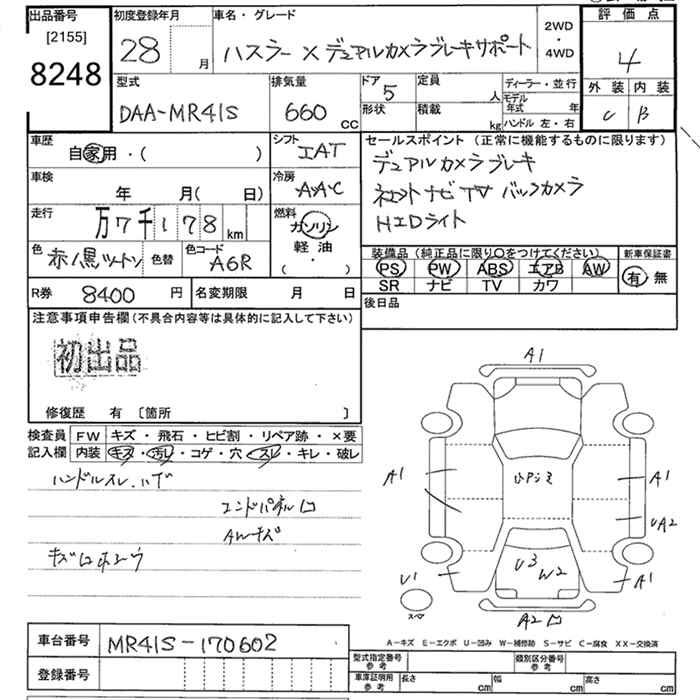 出品番号
[2155]
8248
初度登録年月
28 月
車名・グレード
ハスラー X デュアルカメラブレーキサポート
2WD
・
4WD
評価点
4
外装 内装
C B
型式
DAA-MR41S
排気量
660 cc
ドア
5
形状
定員
人
積載
kg
ディーラー・並行
モデル
年式 年
ハンドル 左・右
車歴
自家用・( )
シフト
IAT
冷房
AAC
車検
年 月( 日)
走行
万7千178km
燃料
ガソリン
軽油
( ・ )
色
赤/黒ツートン
色替
色コード
A6R
R券 8400 円
名変期限 月 日
セールスポイント (正常に機能するものに限ります)
デュアルカメラブレーキ
ナビTV バックカメラ
HIDライト
装備品 (純正品に限り○をつけてください)
PS PW ABS エアB AW
SR ナビ TV カワ
新車保証書
有 無
後日品
注意事項申告欄 (不具合内容等は具体的に記入して下さい)
初出品
修復歴 有 〔箇所 〕
検査員
記入欄
FW キズ・飛石・ヒビ割・リペア跡・×要
内装 キズ・汚レ・コゲ・穴・スレ・キレ・破レ
ハンドルスレ.ハゲ
エンドパネル凹
AWキズ
キズ凹ホユウ
A1
A1
A1
UA2
A1
U3
W2
U1
スペア
A2凹
A-キズ E-エクボ U-凹み W-補修跡 S-サビ C-腐食 XX-交換済
車台番号 MR41S-170602
登録番号
型式指定番号
参考
類別区分番号
参考
車庫証明用
参考
長さ cm
幅 cm
高さ cm